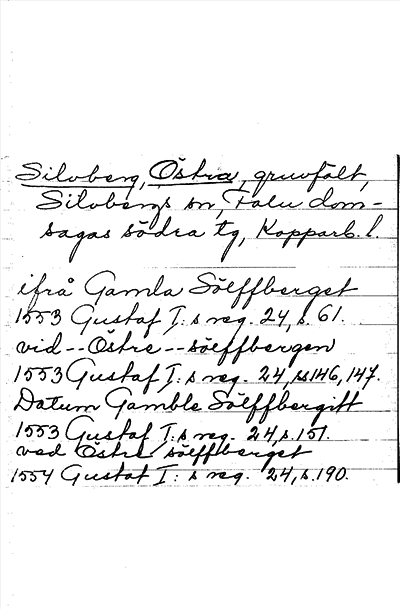 Silvberg, Östra, gruvfält,
Silvbergs sn, Falu dom-
sagas södra tg, Kopparb. l.
ifrå Gamla Sölffberget
1553 Gustaf I:s reg. 24, s. 61.
vid -- Östre -- sölffbergen
1553 Gustaf I:s reg. 24, ss 146, 147.
Datum Gamble Sölffbergitt
1553 Gustaf I:s reg. 24, s. 151.
ved Östre sölffberget
1554 Gustaf I:s reg. 24, s. 190.